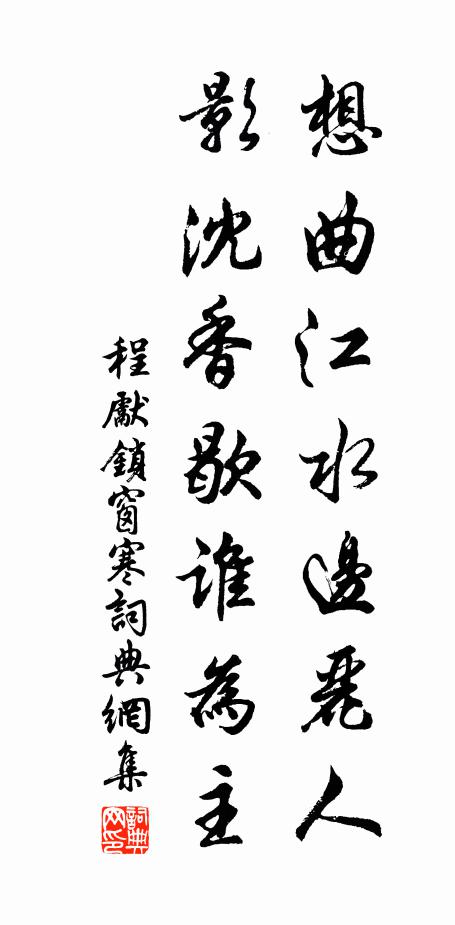 想曲江水邊麗人
影沈香歇誰為主
程獻鎖窗寒詞典網集
詞典网印